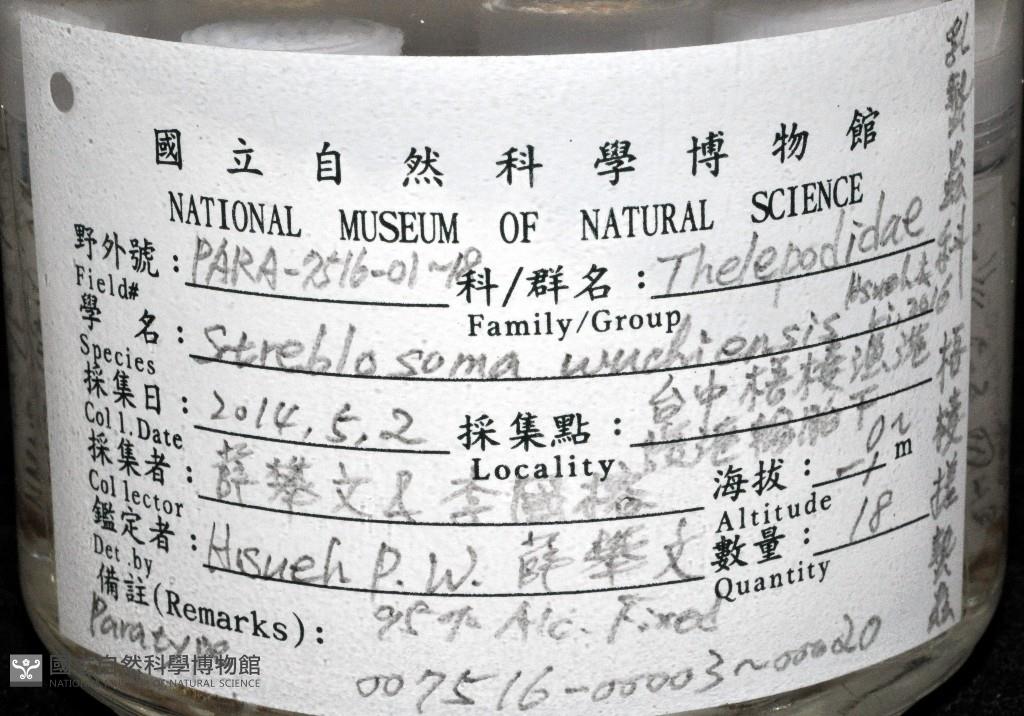 國立自然科學博物館
NATIONAL MUSEUM OF NATURAL SCIENCE
野外號: PARA-7516-01~18 科/群名: Thelepodidae
Field# Family/Group
學名: Streblosoma wuchiensis Hsueh & Li, 2016
Species
採集日: 2014.5.2 採集點: 台中梧棲漁港
Coll.Date Locality
採集者: 薛攀文 & 李 海拔: 0~-1 m
Collector Altitude
鑑定者: Hsueh P.W. 薛攀文 數量: 18
Det.by Quantity
備註(Remarks): 95% Alc. Fixed
Paratype
007516-00003~00020
科 梧棲
國立自然科學博物館
NATIONAL MUSEUM OF NATURAL SCIENCE